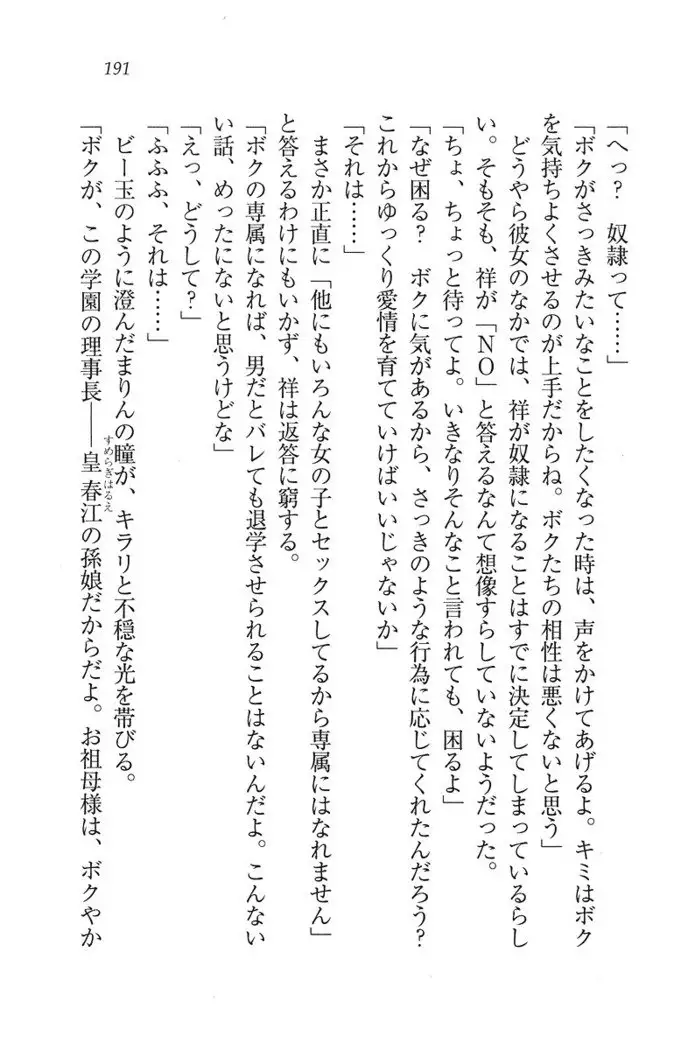 191
「へっ？　奴隷って……」
「ボクがさっきみたいなことをしたくなった時は、声をかけてあげるよ。キミはボク
を気持ちよくさせるのが上手だからね。ボクたちの相性は悪くないと思う」
どうやら彼女のなかでは、祥が奴隷になることはすでに決定してしまっているらし
い。そもそも、祥が「ＮＯ」と答えるなんて想像すらしていないようだった。
「ちょ、ちょっと待ってよ。いきなりそんなこと言われても、困るよ」
「なぜ困る？　ボクに気があるから、さっきのような行為に応じてくれたんだろう？
これからゆっくり愛情を育てていけばいいじゃないか」
「それは……」
まさか正直に「他にもいろんな女の子とセックスしてるから専属にはなれません」
と答えるわけにもいかず、祥は返答に窮する。
「ボクの専属になれば、男だとバレても退学させられることはないんだよ。こんない
い話、めったにないと思うけどな」
「えっ、どうして？」
「ふふふ、それは……」
ビー玉のように澄んだまりんの瞳が、キラリと不穏な光を帯びる。
すめらぎはるえ
「ボクが、この学園の理事長――皇春江の孫娘だからだよ。お祖母様は、ボクやか